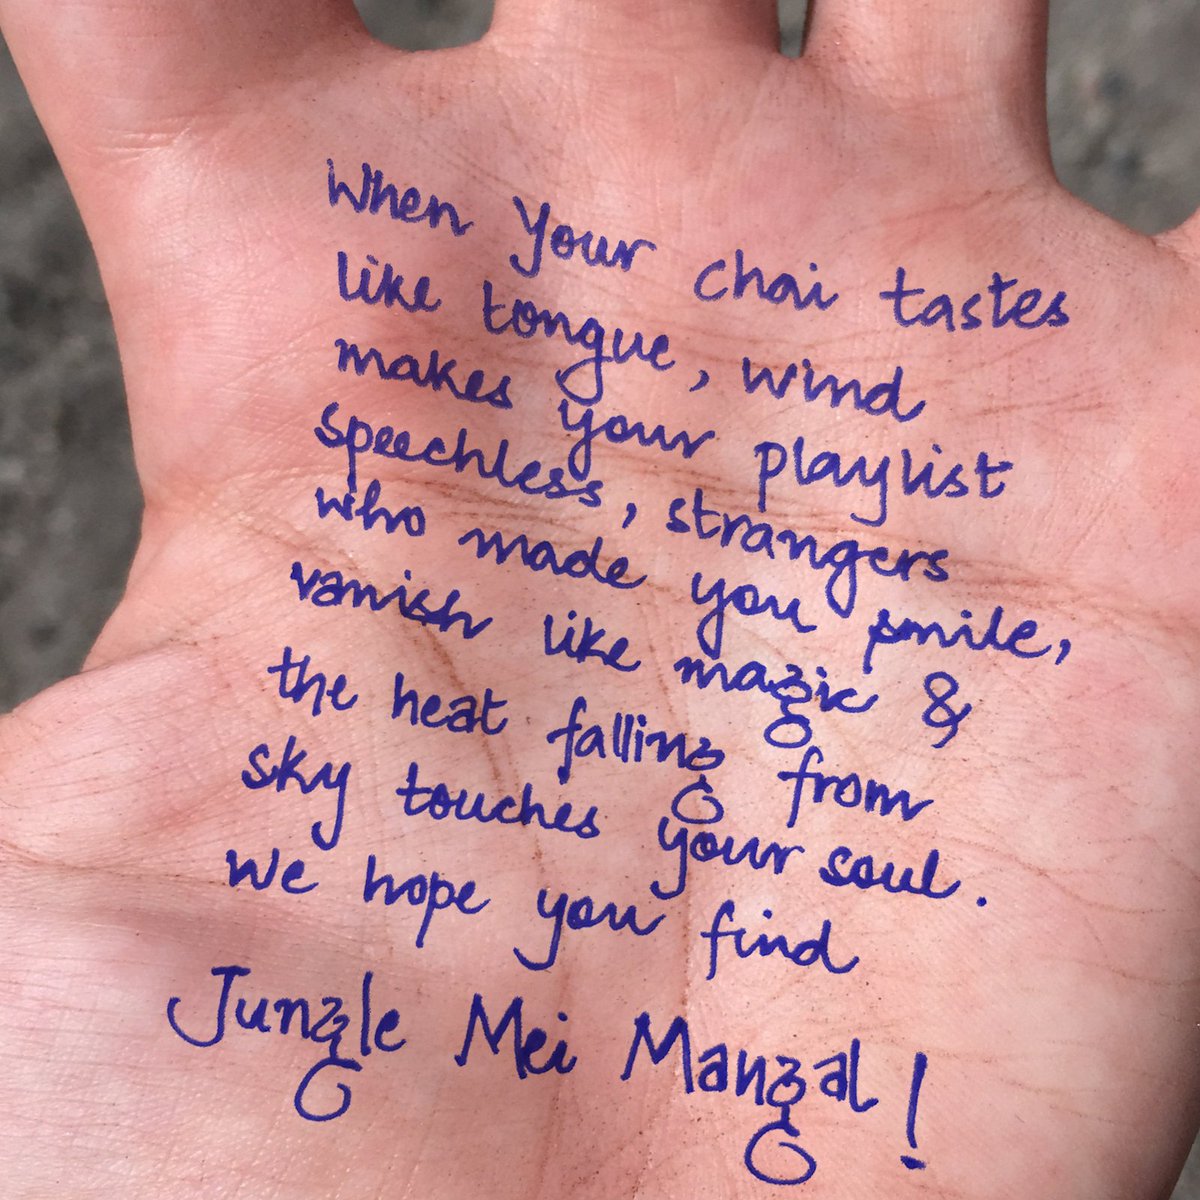 When Your chai tastes
like tongue, wind
makes your playlist
speechless, strangers
who made you smile,
vanish like magic &
the heat falling from
sky touches your soul.
We hope you find
Jungle Mei Mangal!